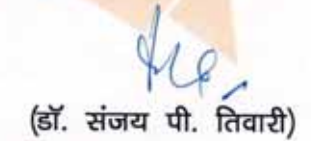 (डॉ. संजय पी. तिवारी)